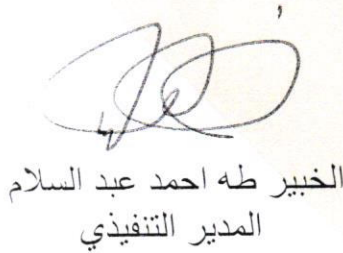 الخبير طه احمد عبد السلام
المدير التنفيذي